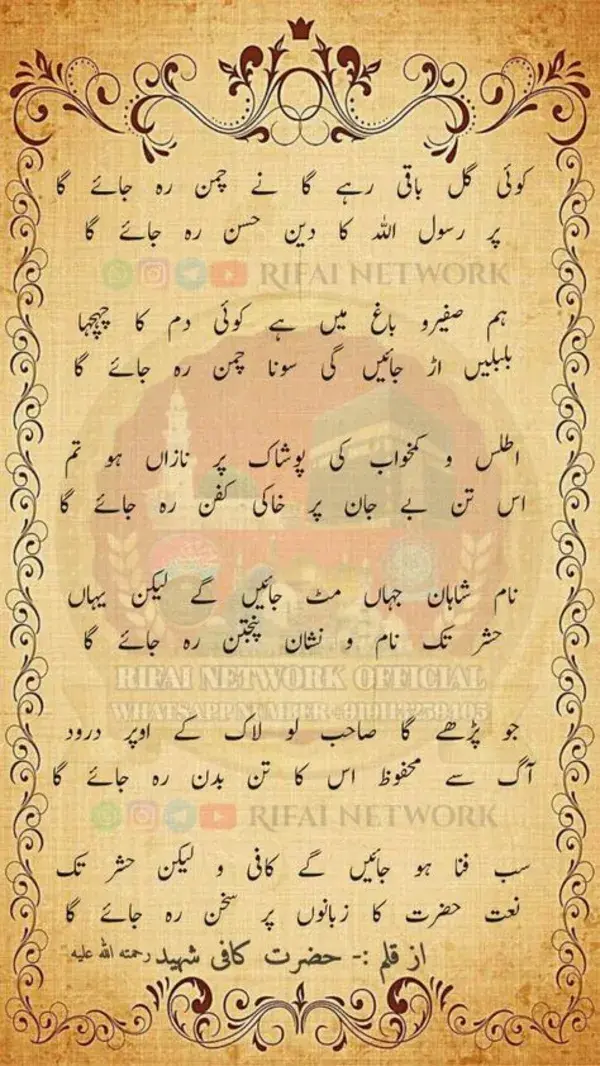 کوئی گل باقی رہے گا نے چمن رہ جائے گا
پر رسول اللہ کا دین حسن رہ جائے گا
RIFAI NETWORK
ہم صفیرو باغ میں ہے کوئی دم کا چہچہا
بلبلیں اڑ جائیں گی سونا چمن رہ جائے گا
اطلس و کمخواب کی پوشاک پر نازاں ہو تم
اس تن بے جان پر خاکی کفن رہ جائے گا
نام شاہان جہاں مٹ جائیں گے لیکن یہاں
حشر تک نام و نشان پنجتن رہ جائے گا
RIFAI NETWORK OFFICIAL
WHATSAPP NUMBER
جو پڑھے گا صاحب لو لاک کے اوپر درود
آگ سے محفوظ اس کا تن بدن رہ جائے گا
RIFAI NETWORK
سب فنا ہو جائیں گے کافی و لیکن حشر تک
نعت حضرت کا زبانوں پر سخن رہ جائے گا
از قلم :- حضرت کافی شہید رحمتہ اللہ علیہ